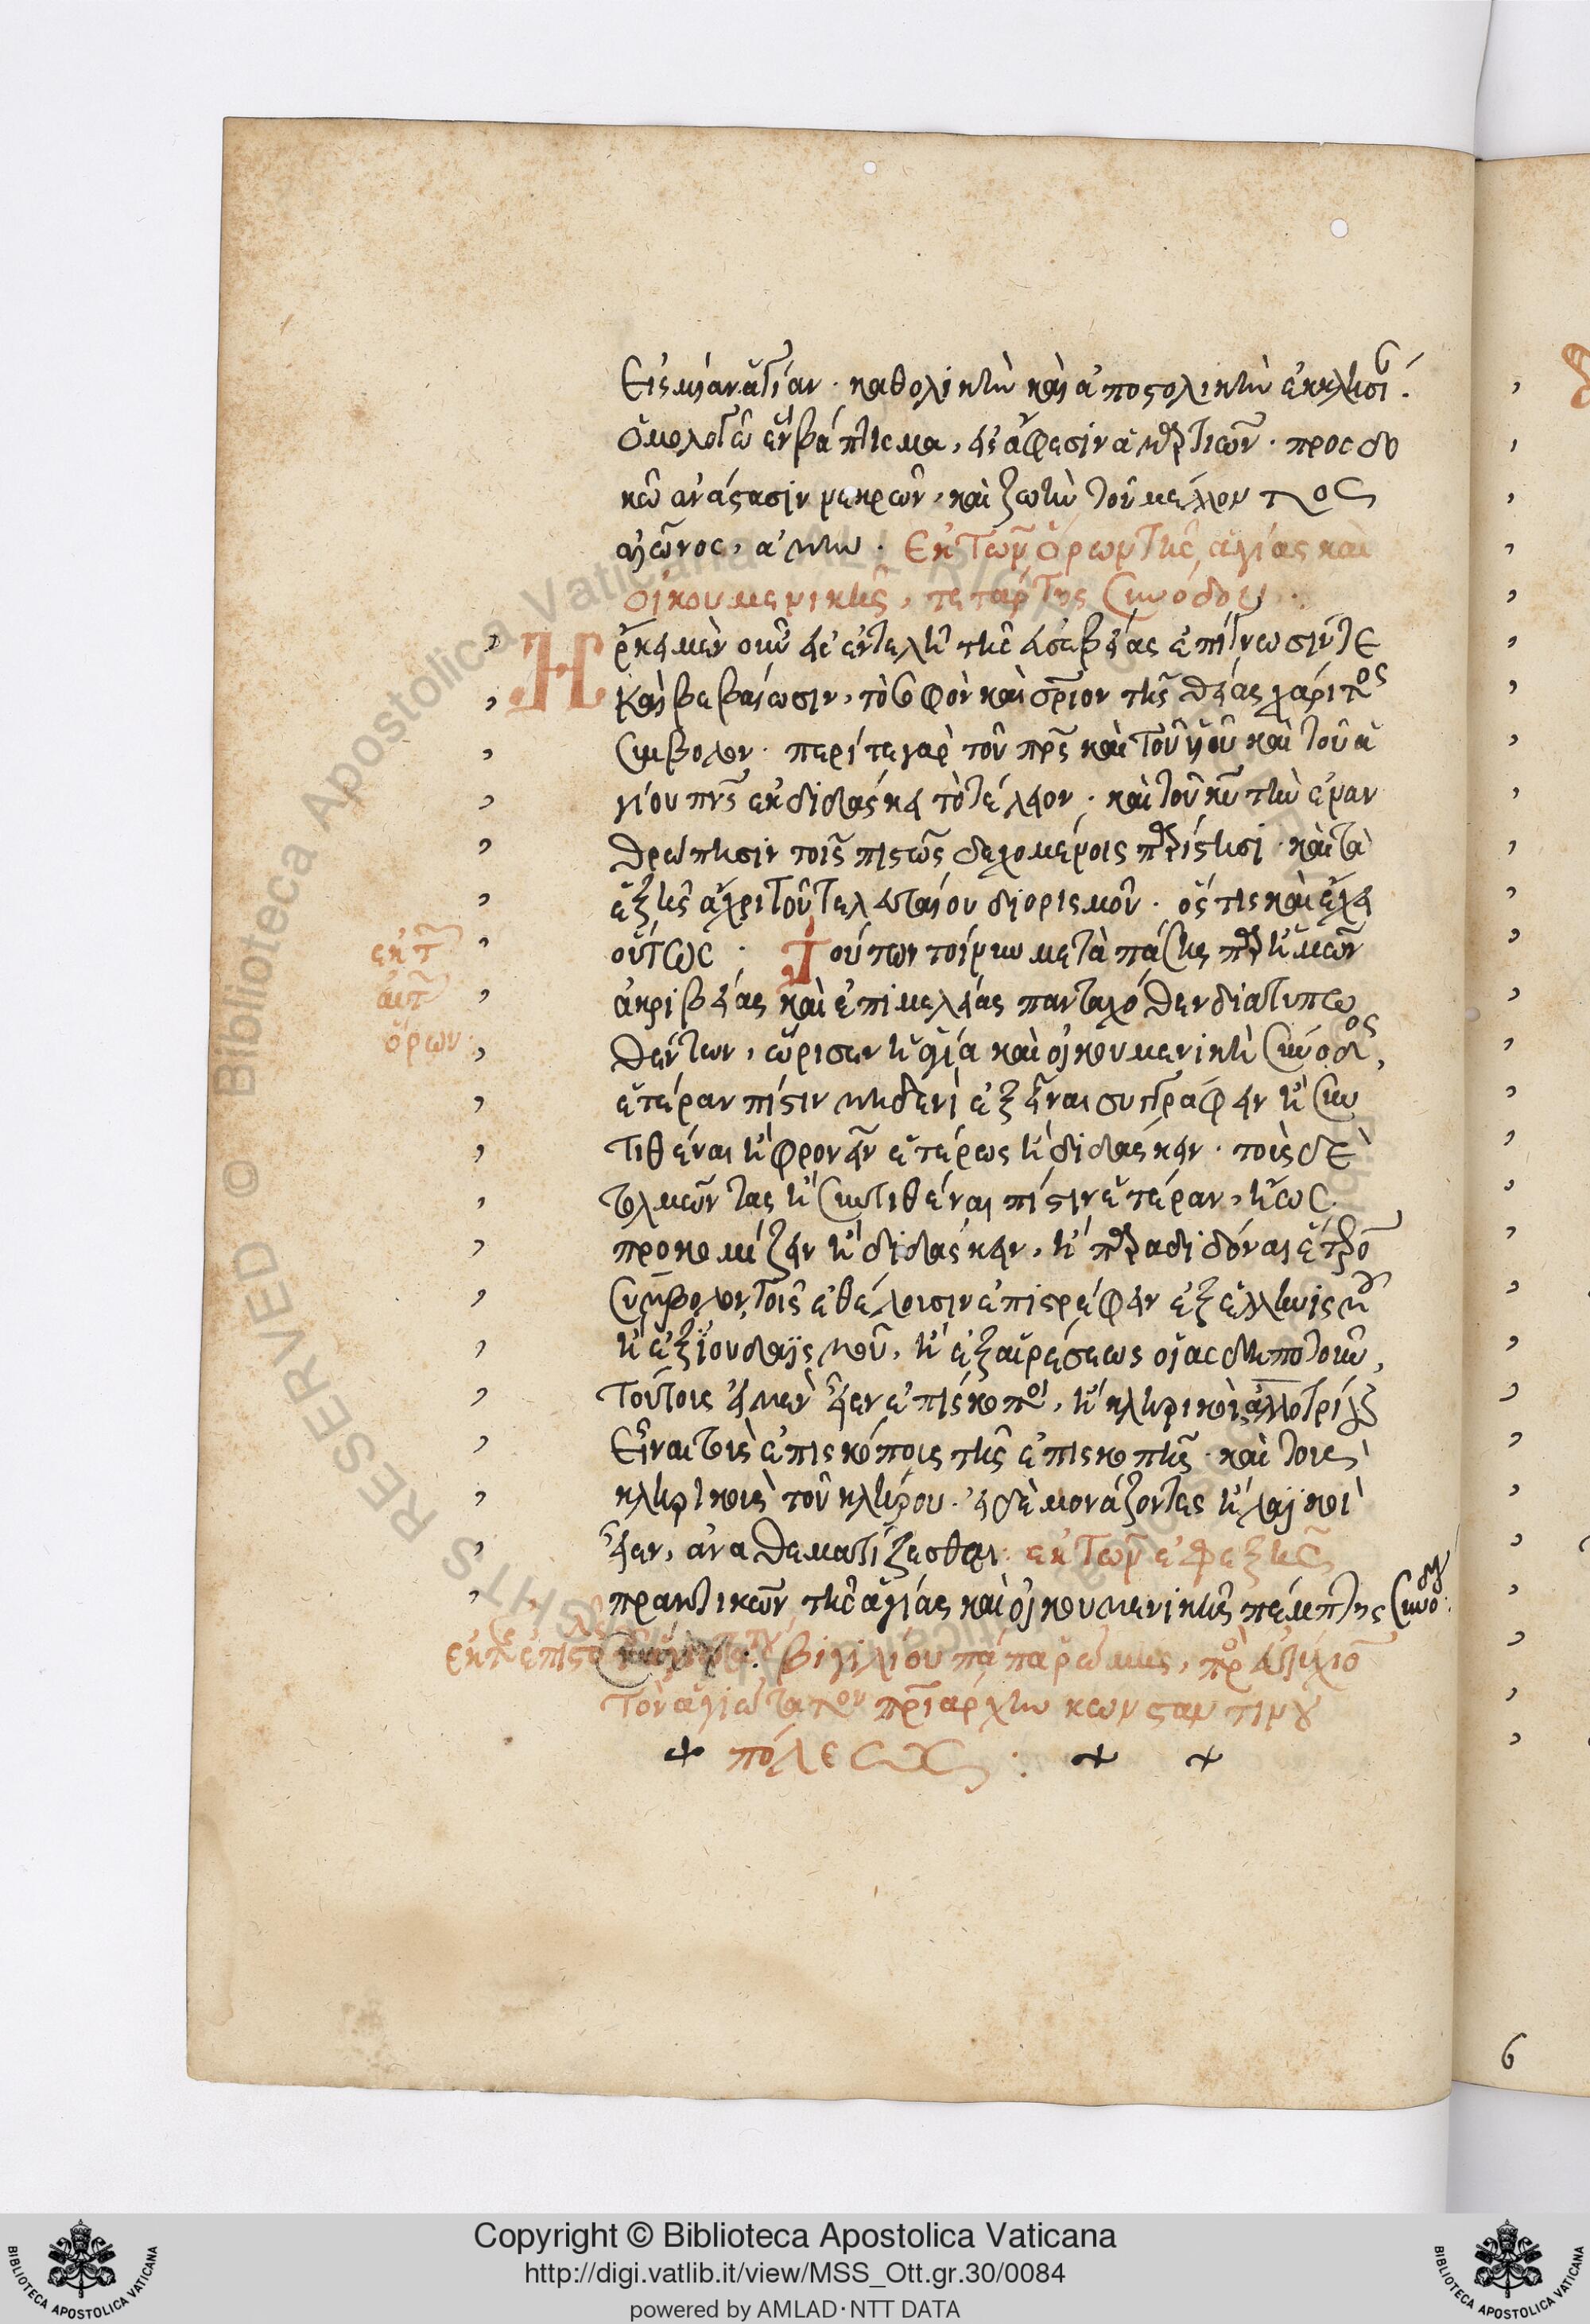 Εἰς μίαν ἁγίαν· καθολικὴν καὶ ἀποστολικὴν ἐκκλησί.
Ὁμολογῶ ἓν βάπτισμα, εἰς ἄφεσιν ἁμαρτιῶν· προσδο
κῶ ἀνάστασιν νεκρῶν, καὶ ζωὴν τοῦ μέλλοντος
αἰῶνος, ἀμήν. Ἐκ τῶν ὅρων τῆς ἁγίας καὶ
οἰκουμενικῆς, τετάρτης συνόδου.
Ἤρκει μὲν οὖν εἰς ἐντελῆ τῆς εὐσεβείας ἐπίγνωσίν τε
καὶ βεβαίωσιν, τὸ σοφὸν καὶ σρίον τῆς θείας χάριτος
σύμβολον· περί τε γὰρ τοῦ πρς καὶ τοῦ υἱοῦ καὶ τοῦ ἁ
γίου πνς ἐκδιδάσκει τὸ τέλειον· καὶ τοῦ κυ τὴν ἐναν
θρώπησιν τοῖς πιστῶς δεχομένοις παρίστησι· καὶ τὰ
ἑξῆς ἄχρι τοῦ τελευταίου διορισμοῦ· ὅστις καὶ ἔχει
οὕτως· Τούτων τοίνυν μετὰ πάσης παρ' ἡμῶν
ἀκριβείας καὶ ἐπιμελείας πανταχόθεν διατυπω
θέντων, ὥρισεν ἡ ἁγία καὶ οἰκουμενικὴ σύνοδος,
ἑτέραν πίστιν μηδενὶ ἐξεῖναι συγγράφειν ἢ συν
τιθέναι ἢ φρονεῖν ἑτέρως ἢ διδάσκειν· τοὺς δὲ
τολμῶντας ἢ συντιθέναι πίστιν ἑτέραν, ἤγως
προκομίζειν ἢ διδάσκειν, ἢ παραδιδόναι ἕτερο
σύμβολον τοῖς ἐθέλουσιν ἐπιστρέφειν ἐξ ἑλληνισμ
ἢ ἐξ ἰουδαϊσμοῦ, ἢ ἐξ αἱρέσεως οἵας δήποτ' οὖν,
τούτους εἰ μὲν εἶεν ἐπίσκοποι, ἢ κληρικοὶ ἀλλοτρίους
εἶναι τοὺς ἐπισκόπους τῆς ἐπισκοπῆς· καὶ τοὺς
κληρικοὺς τοῦ κλήρου· εἰ δὲ μονάζοντες ἢ λαϊκοὶ
εἶεν, ἀναθεματίζεσθαι. ἐκ τῶν ἐφεξῆς
πρακτικῶν τῆς ἁγίας καὶ οἰκουμενικῆς πέμπτης συνόδου.
Βιγιλίου πάπα ῥώμης, πρὸ εὐτύχιο
τὸν ἁγιώτατον πριάρχην κωνσταντινου
πόλεως:
ἐκ τ
αὐτ
ὅρων
Copyright © Biblioteca Apostolica Vaticana
http://digi.vatlib.it/view/MSS_Ott.gr.30/0084
powered by AMLAD·NTT DATA
BIBLIOTECA APOSTOLICA VATICANA
BIBLIOTECA APOSTOLICA VATICANA